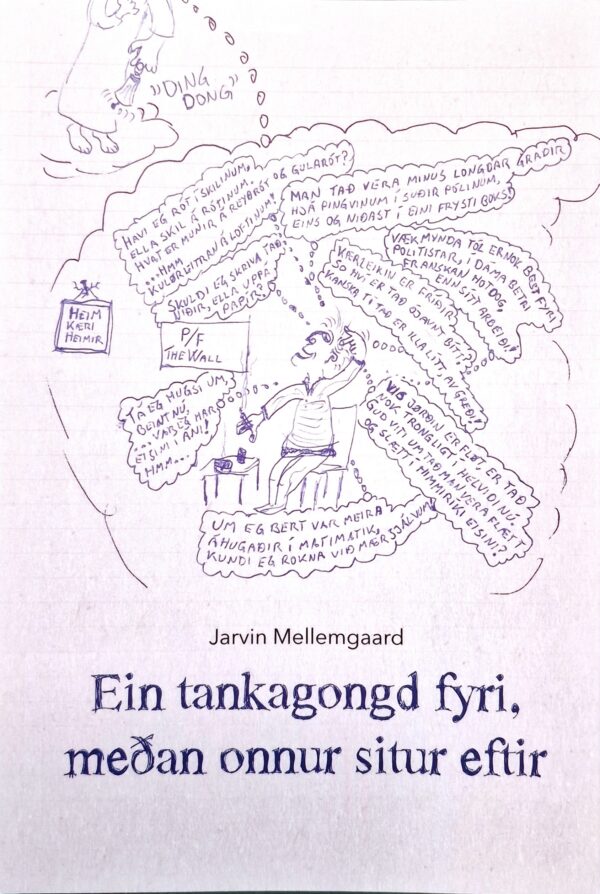 "DING
DONG"
HAVI EG RÓT Í SKILINUM,
ELLA SKIL Á RÓTINUM.
HVAT ER MUNIR Á REYÐRÓT OG GULARÓT?
...HMM
KULØRLITIRNAR Á LOFTINUM!
MAN TAÐ VERA MINUS LONGDAR GRAÐIR
HJÁ PINGVINUM Í SUÐIR PÓLINUM,
EINS OG NIÐAST Í EINI FRYSTI BOKS?
SKULDI EG SKRIVA TAÐ
VIÐIR, ELLA UPPÁ
PAPIR?
VÆKMYNDA TÓL ER NOK BEST FYRI
POLITISTAR, Í DAMA BETRI
FRANSKAN HOTDOG,
ENN SITT ARBEIÐI!
KÆRLEIKIN ER FRÍÐIR
SO HVÍ ER TAÐ OJAVNT BÍTT?
KANSKA TÍ TAÐ ER ILLA LÍTT, AV GREÐI!
HEIM
KÆRI
HEIMIR
P/F
THE WALL
TÁ EG HUGSI UM,
BEINT NÚ,
...VAR EG HAR
EISINI Í ÁNI!
HMM...
VIS JØRÐIN ER FLØT, ER TAÐ
NOK TRONGLIGT Í HELVIDI NÚ.
GUD VIT UM TAÐ MAN VERA FLÆTT
OG SLÆTT Í HIMMIRIKI EISINI?
UM EG BERT VAR MEIRA
ÁHUGAÐIR Í MATIMATIK,
KUNDI EG ROKNA VIÐ MÆR SJÁLVUM!
Jarvin Mellemgaard
Ein tankagongd fyri,
meðan onnur situr eftir